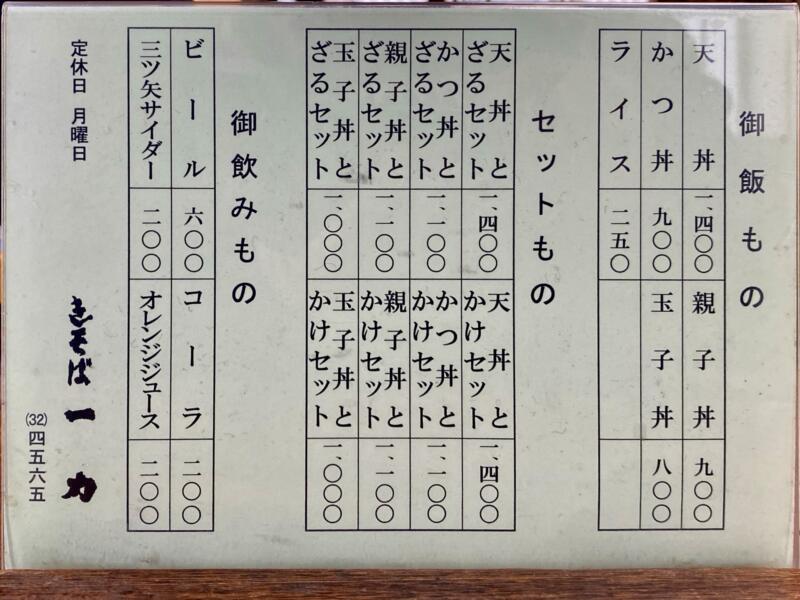 御飯もの
天丼 一、四〇〇
親子丼 九〇〇
かつ丼 九〇〇
玉子丼 八〇〇
ライス 二五〇
セットもの
天丼と
ざるセット 一、四〇〇
天丼と
かけセット 一、四〇〇
かつ丼と
ざるセット 一、一〇〇
かつ丼と
かけセット 一、一〇〇
親子丼と
ざるセット 一、一〇〇
親子丼と
かけセット 一、一〇〇
玉子丼と
ざるセット 一、〇〇〇
玉子丼と
かけセット 一、〇〇〇
御飲みもの
ビール 六〇〇
コーラ 二〇〇
三ツ矢サイダー 二〇〇
オレンジジュース 二〇〇
定休日 月曜日
きそば 一力
(32)四五六五